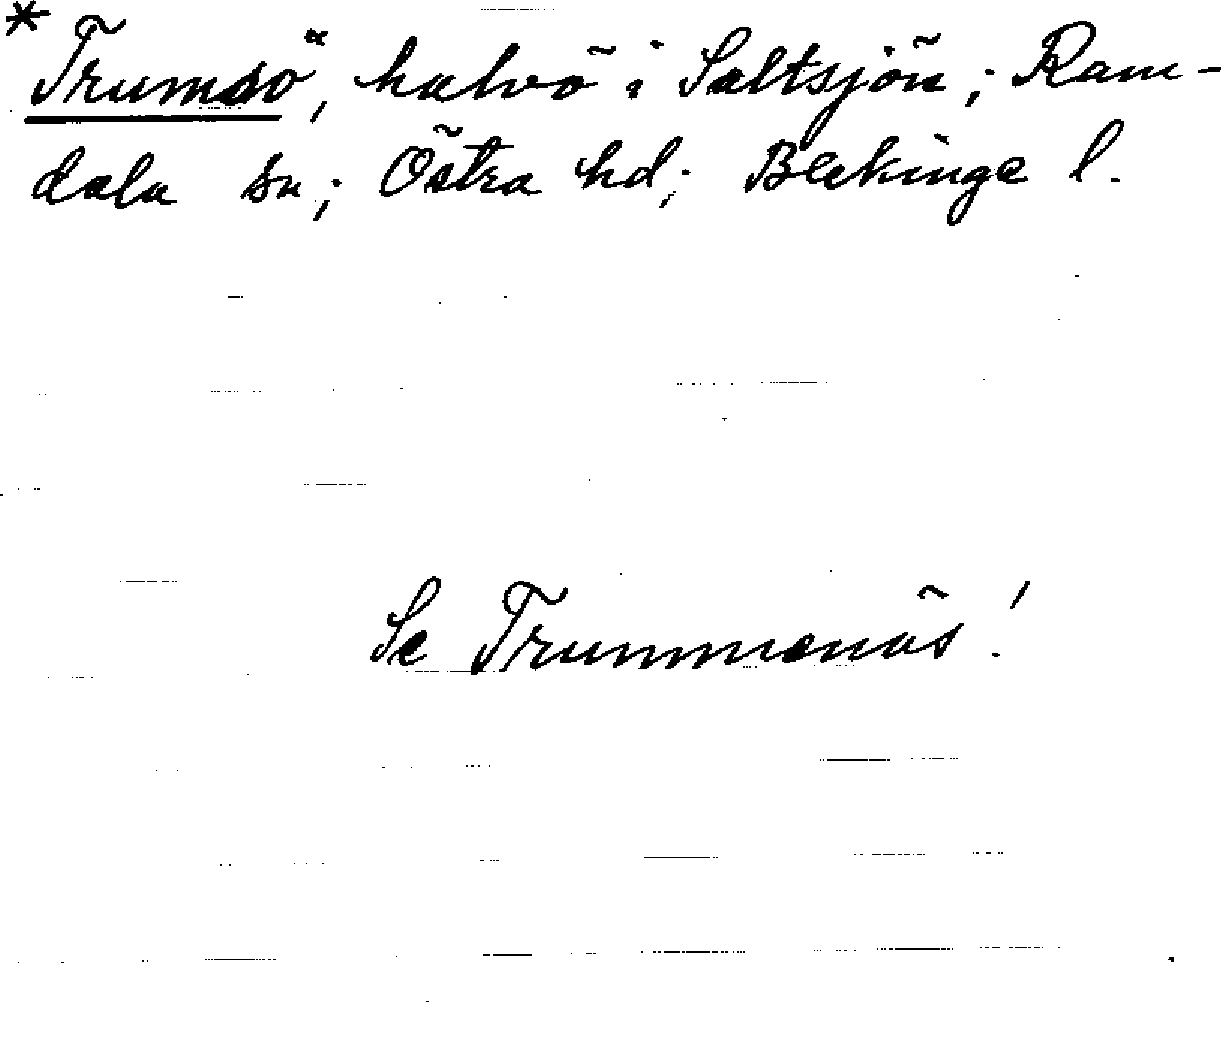 *Trumsö, halvö i Saltsjön; Ram-
dala sn; Östra hd; Blekinge l.
Se Trummenäs!